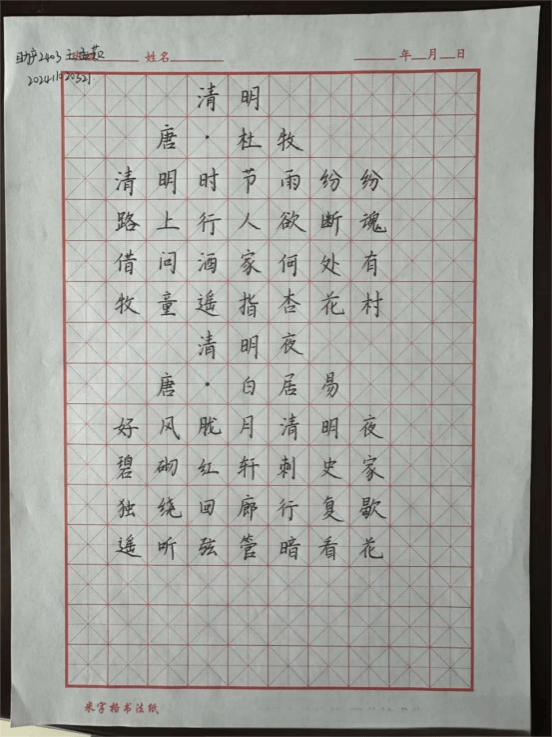 助产2403
姓名
年 月 日
清明
唐·杜牧
清明时节雨纷纷
路上行人欲断魂
借问酒家何处有
牧童遥指杏花村
清明夜
唐·白居易
好风胧月清明夜
碧砌红轩刺史家
独绕回廊行复歇
遥听弦管暗看花
米字格书法纸